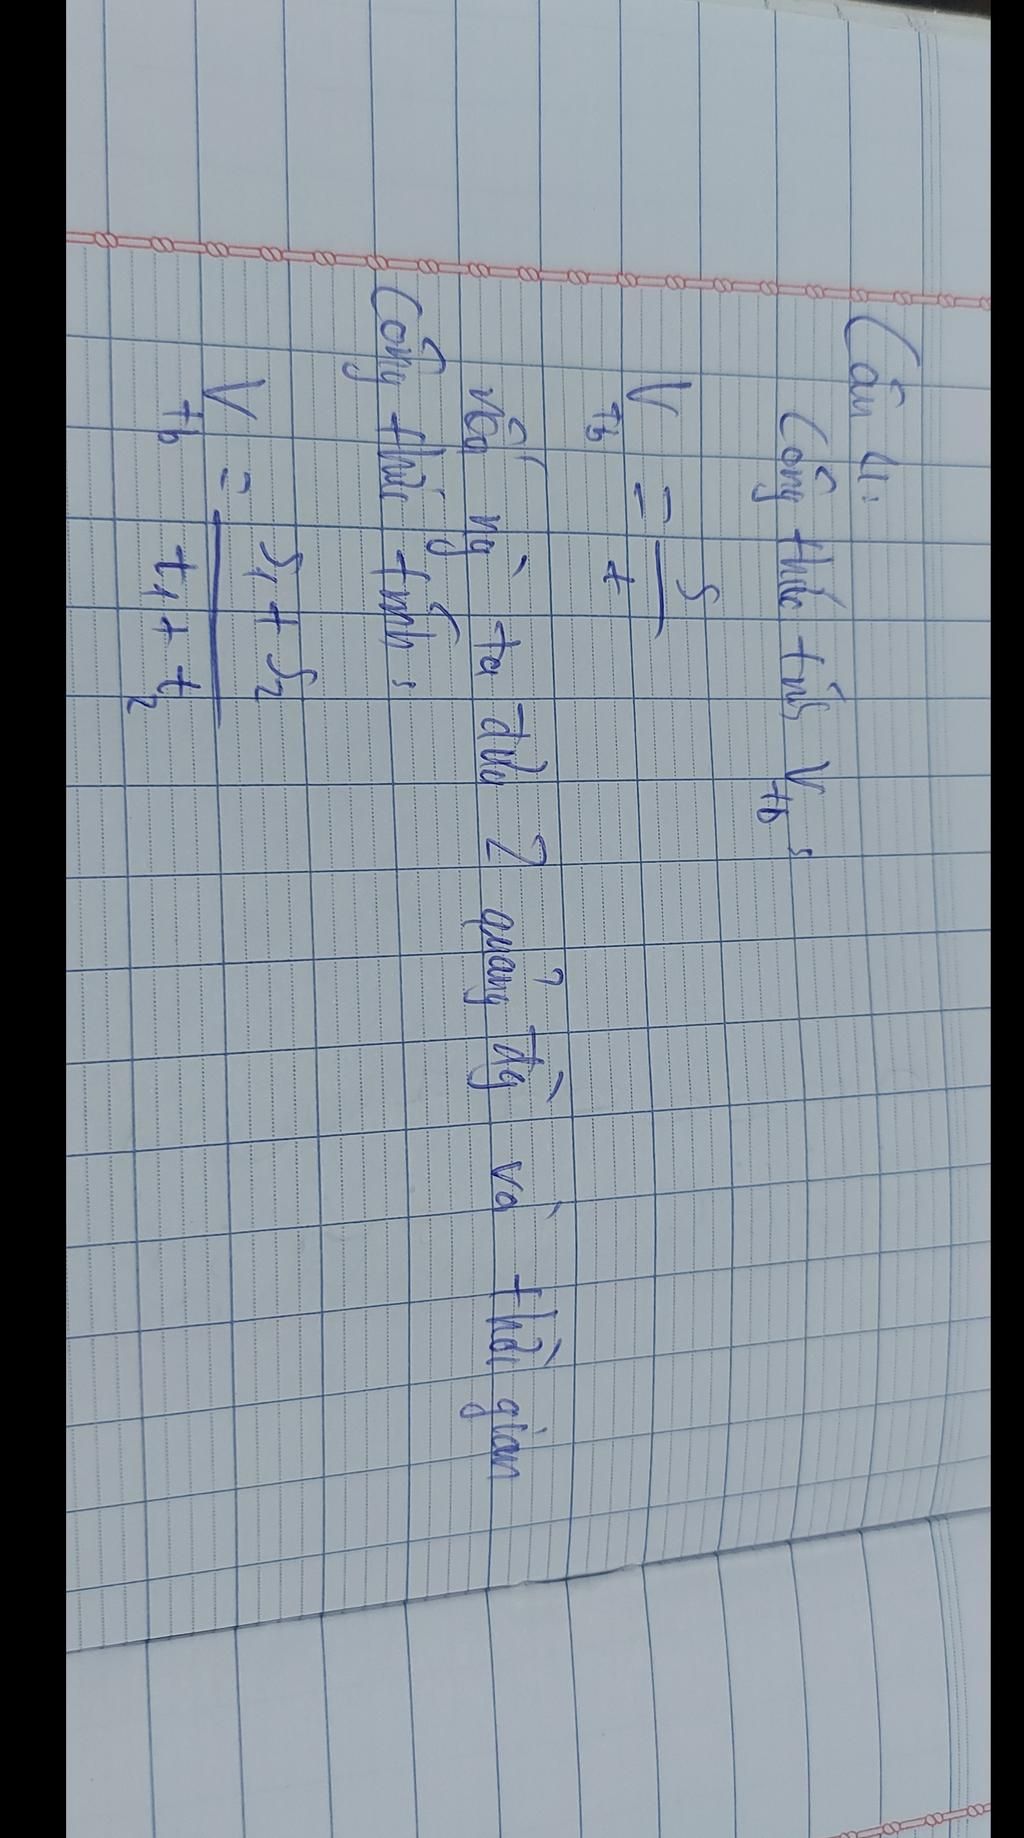 Câu 4:
Công thức tính Vtb:
Vtb = S / t
người ta đưa 2 quảng đg và thời gian
Công thức tính:
Vtb = S1 + S2 / t1 + t2